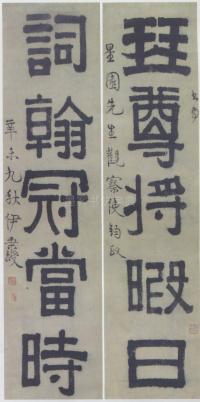 珡尊將暇日
星園先生觀察使鈞政
詞翰冠當時
辛未九秋伊秉綬